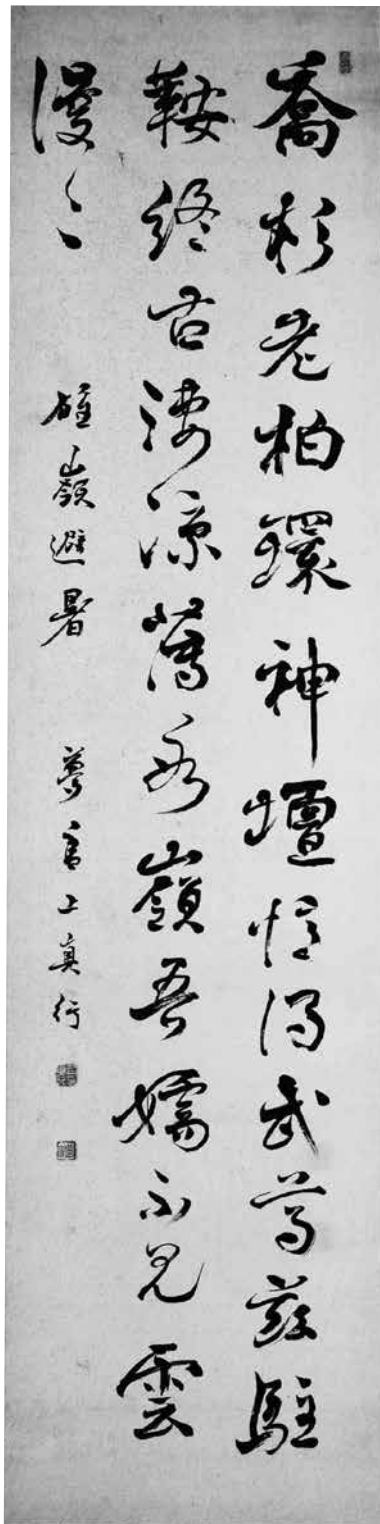 喬杉老柏鐶神壇憶得武尊茲駐
鞍終古凄涼薄氷嶺吾嬬不見雲
漫々
碓嶺避暑 夢香上真行